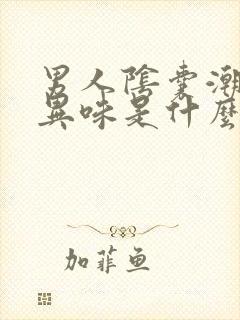 男人陰囊潮
異味是什麼
加菲鱼